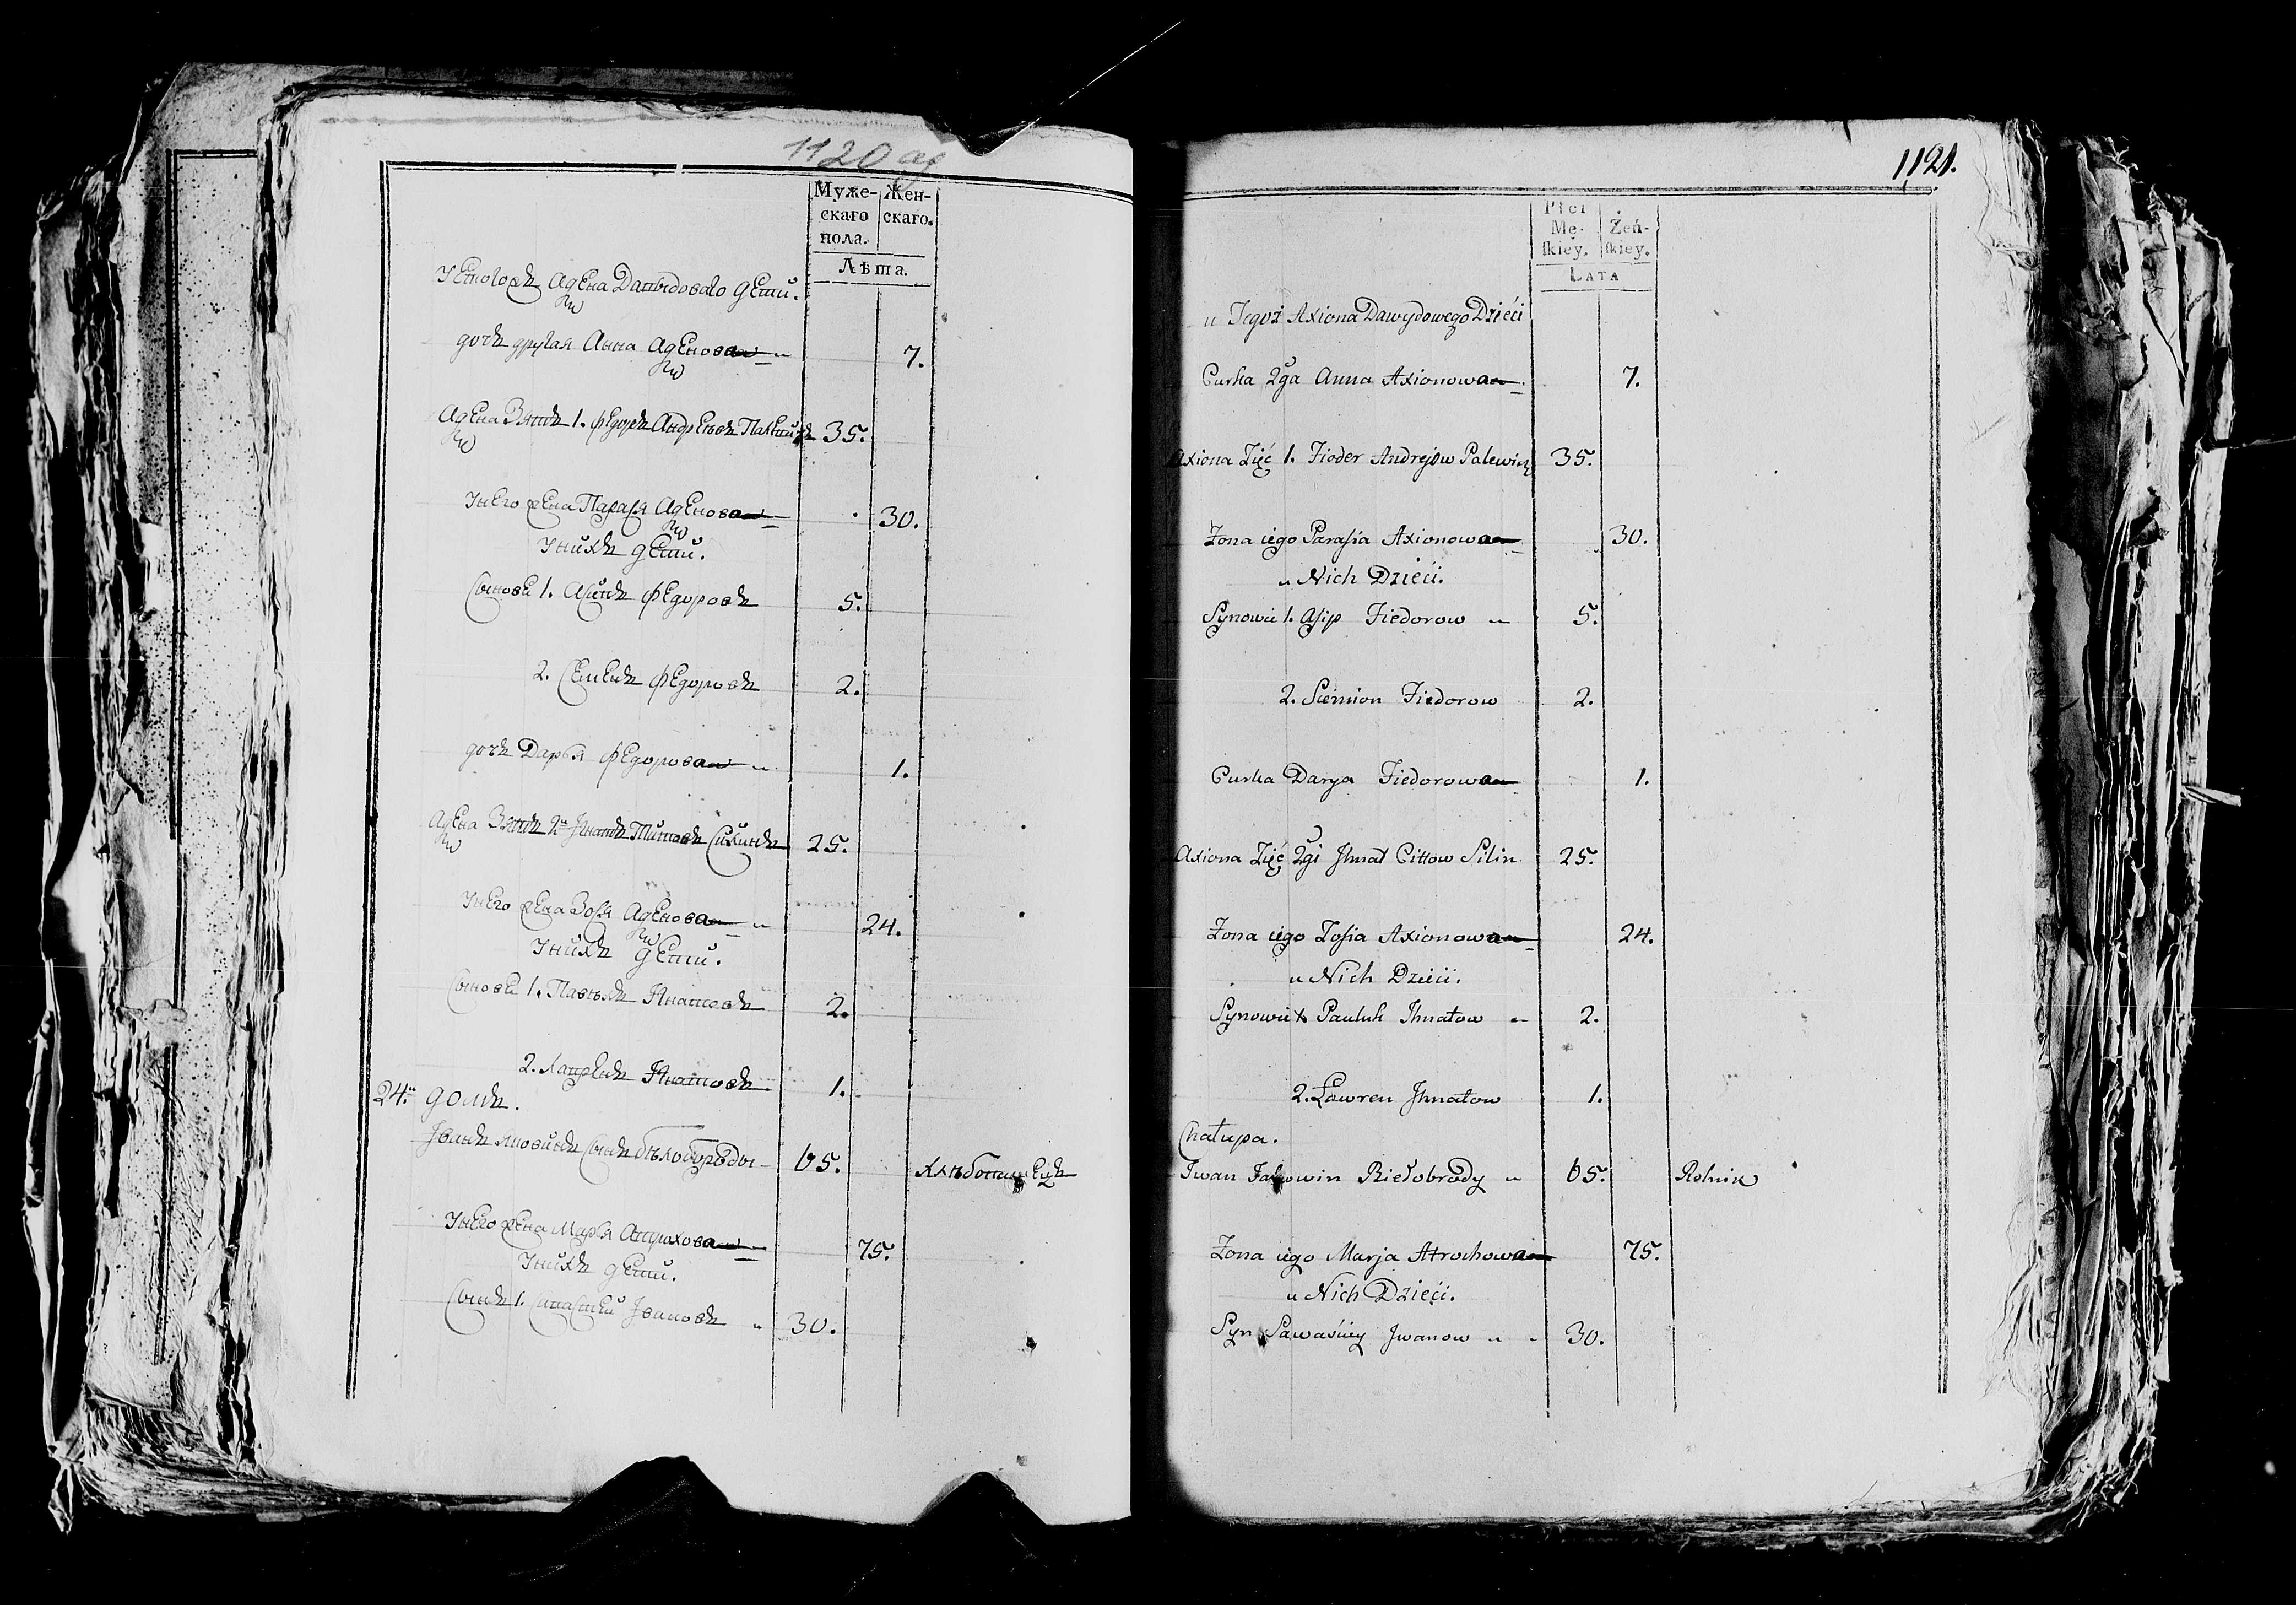 1120 об
Муже-
скаго
пола.
Жен-
скаго.
Лѣта.
Утогожъ Аѯена Давыдоваго дети.
дочъ другая Анна Аѯенова 7.
Аѯена Зять 1. Федоръ Андреевъ 35.
Унего жена Парася Аѯенова 30.
Унихъ дети.
Сынове 1. Асипъ Федоровъ 5.
2. Семенъ Федоровъ 2.
дочъ Дарья Федорова 1.
Аѯена Зять 2й Ігнатъ Титовъ Силинъ 25.
Унего жена Зося Аѯенова 24.
Унихъ дети.
Сынове 1. Павлюкъ Ігнатовъ 2.
2. Лавренъ Ігнатовъ 1.
24й домъ.
Іванъ сынъ бѣлобороды 65. хлѣбопашецъ
Унего жена Марья Атрахова 75.
Унихъ дети.
Сынъ 1. Савастей Івановъ 30.
1121.
Płci
Mę-
ſkiey.
Żeń-
ſkiey.
LATA
u Tegoż Axiona Dawydowego Dzieći
Curka 2ga Anna Axionowa 7.
Axiona Zięć 1. Fioder Andrejów Palewicz 35.
Zona iego Parasia Axionowa 30.
u Nich Dzieći.
Synowie 1. Asip Fiedorow 5.
2. Siemion Fiedorow 2.
Curka Darya Fiedorowa 1.
Axiona Zięć 2gi Jhnat Cittow Silin 25.
Zona iego Zosia Axionowa 24.
u Nich Dzieći.
Synowie 1. Pauluk Jhnatow 2.
2. Ławren Jhnatow 1.
Chałupa.
Iwan Jakowin Biełobrody 65. Rolnik
Zona iego Marja Atrochowa 75.
u Nich Dzieći.
Syn Sawaściey Jwanow 30.